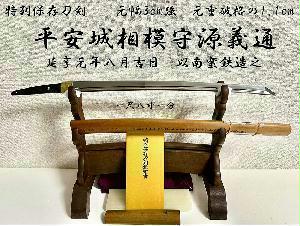 特別保存刀剣　元幅3cm強　元重破格の1,1cm
平安城相模守源義通
延享元年八月吉日　以南蛮鉄造之
一尺八寸一分